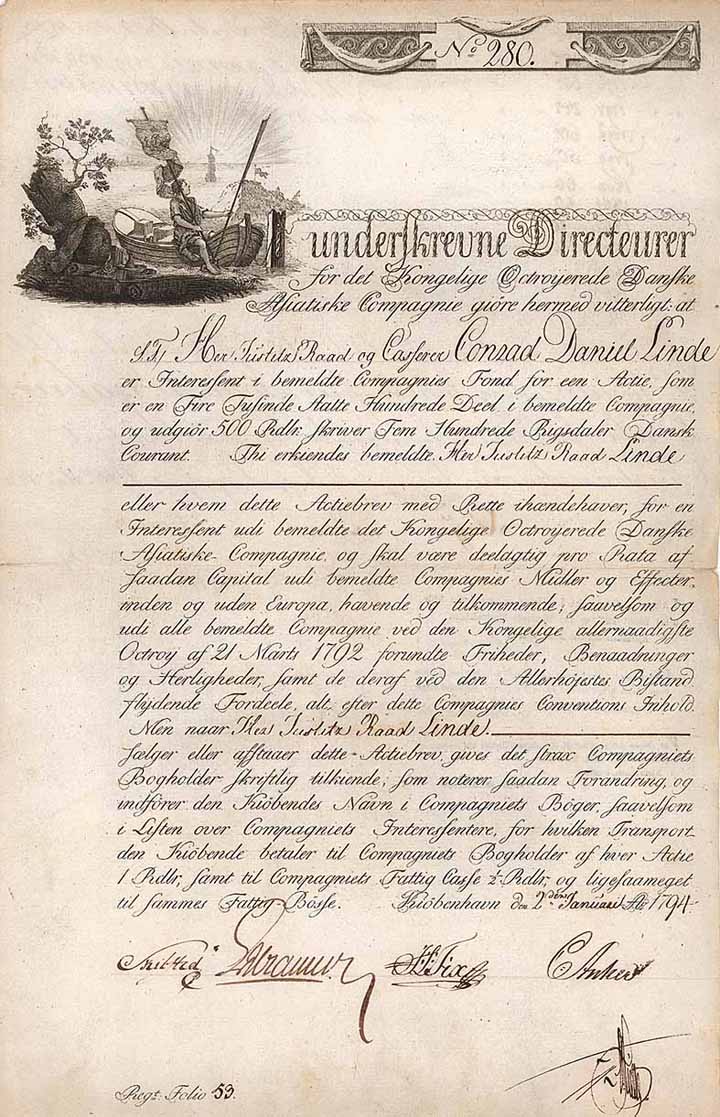 No. 280.
Underskrevne Directeurer
for det Kongelige Octroyerede Danske
Asiatiske Compagnie giöre hermed vitterligt: at
S.T. Her Justitz Raad og Casserer Conrad Daniel Linde
er Interessent i bemeldte Compagnies Fond for een Actie, som
er en Fire Tusinde Aatte Hundrede Deel i bemeldte Compagnie,
og udgiör 500 Rdlr. skriver Fem Hundrede Rigsdaler Dansk
Courant. Thi erkiendes bemeldte Her Justitz Raad Linde
eller hvem dette Actiebrev med Rette ihændehaver, for en
Interessent udi bemeldte det Kongelige Octroyerede Danske
Asiatiske Compagnie, og skal være deelagtig pro Rata af
saadan Capital udi bemeldte Compagnies Midler og Effecter,
inden og uden Europa, havende og tilkommende; saavelsom og
udi alle bemeldte Compagnie ved den Kongelige allernaadigste
Octroy af 21 Marts 1792 forundte Friheder, Benaadninger
og Herligheder, samt de deraf ved den Allerhöjestes Bistand
flydende Fordeele, alt efter dette Compagnies Conventions Inhold.
Men naar Her Justitz Raad Linde.
sælger eller afstaaer dette Actiebrev, gives det strax Compagniets
Bogholder skriftlig tilkiende; som noterer saadan Forandring, og
indförer den Kiöbendes Navn i Compagniets Böger, saavelsom
i Listen over Compagniets Interessentere, for hvilken Transport
den Kiöbende betaler til Compagniets Bogholder af hver Actie
1 Rdlr, samt til Compagniets Fattig Casse ½ Rdlr, og ligesaameget
til sammes Fattig Bösse. Kiöbenhavn den 2den Januari Ao. 1794.
Fix C Anker
Regt. Folio 53.